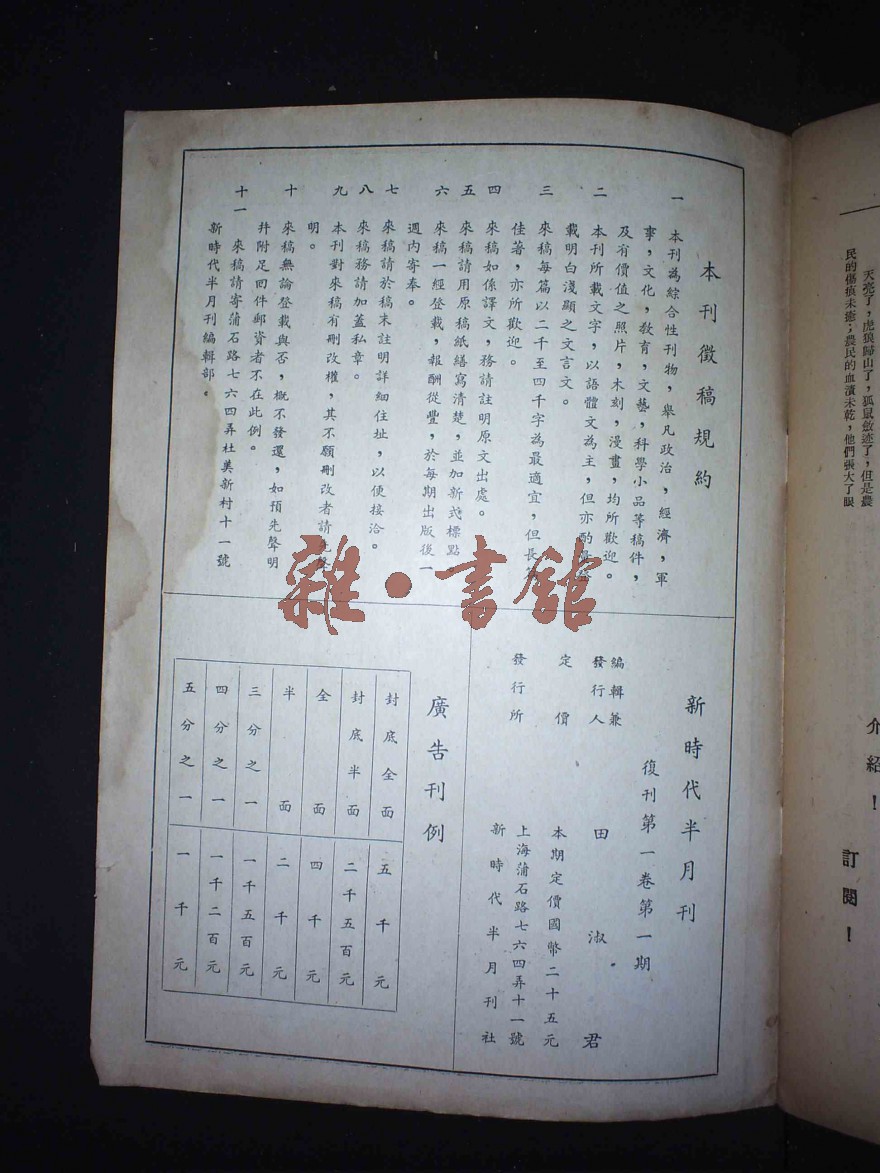 天亮了，虎狼歸山了，狐鼠斂迹了，但是農
民的傷痕未癒；農民的血漬未乾，他們張大了眼
介紹！
訂閱！
本刊徵稿規約
一 本刊為綜合性刊物，舉凡政治，經濟，軍
事，文化，敎育，文藝，科學小品等稿件，
及有價值之照片，木刻，漫畫，均所歡迎。
二 本刊所載文字，以語體文為主，但亦酌量登
載明白淺顯之文言文。
三 來稿每篇以二千至四千字為最適宜，但長篇
佳著，亦所歡迎。
四 來稿如係譯文，務請註明原文出處。
五 來稿請用原稿紙繕寫清楚，並加新式標點
六 來稿一經登載，報酬從豐，於每期出版後一
週內寄奉。
七 來稿請於稿末註明詳細住址，以便接洽。
八 來稿務請加蓋私章。
九 本刊對來稿有刪改權，其不願刪改者請先聲
明。
十 來稿無論登載與否，概不發還，如預先聲明
幷附足回件郵資者不在此例。
十一 來稿請寄蒲石路七六四弄杜美新村十一號
新時代半月刊編輯部。
雜·書館
新時代半月刊
復刊第一卷第一期
編輯兼
發行人 田淑君
定價 本期定價國幣二十五元
發行所 上海蒲石路七六四弄十一號
新時代半月刊社
廣告刊例
封底全面 五千元
封底半面 二千五百元
全面 四千元
半面 二千元
三分之一 一千五百元
四分之一 一千二百元
五分之一 一千元